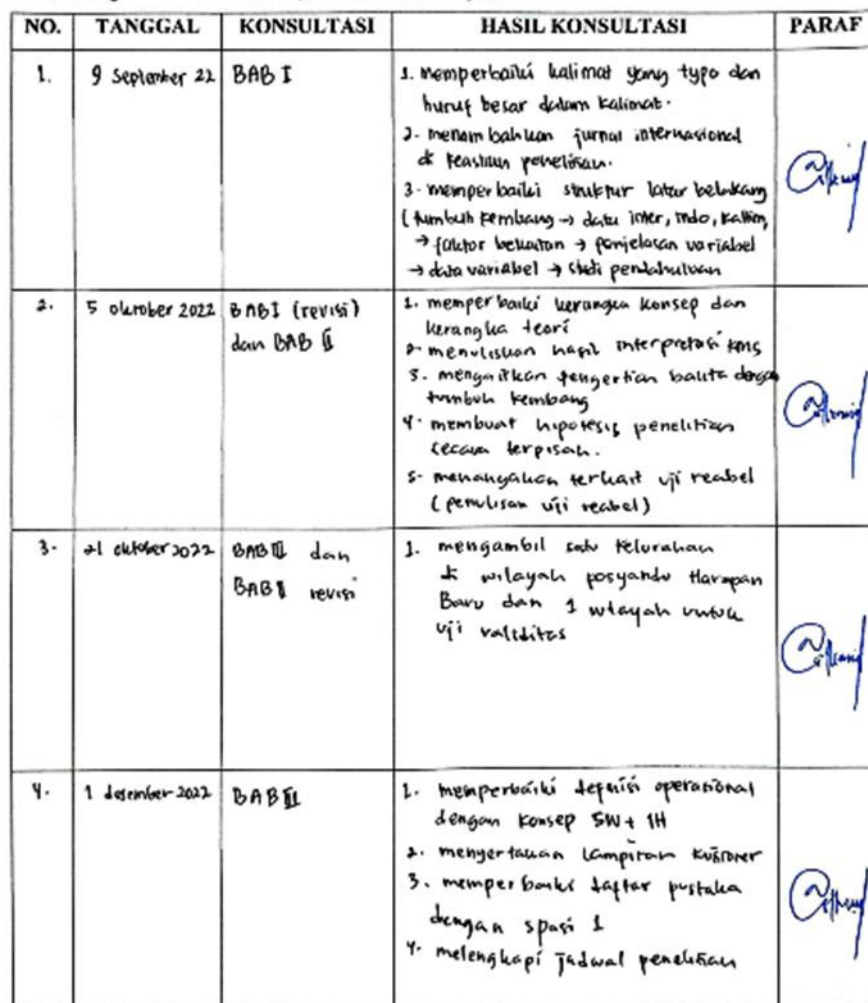 NO. TANGGAL KONSULTASI HASIL KONSULTASI PARAF
1. 9 September 22 BAB I 1. memperbaiki kalimat yang typo dan
huruf besar dalam kalimat.
2. menambahkan jurnal internasional
di keaslian penelitian.
3. memperbaiki struktur latar belakang
(tumbuh kembang → data inter, indo, kaltim,
→ faktor berkaitan → penjelasan variabel
→ data variabel → studi pendahuluan
2. 5 oktober 2022 BAB I (revisi) 1. memperbaiki kerangka konsep dan
dan BAB II kerangka teori
2. menuliskan hasil interpretasi KMS
3. mengaitkan pengertian balita dengan
tumbuh kembang
4. membuat hipotesis penelitian
secara terpisah.
5. menanyakan terkait uji reabel
(penulisan uji reabel)
3. 21 oktober 2022 BAB III dan 1. mengambil satu kelurahan
BAB revisi di wilayah posyandu Harapan
Baru dan 1 wilayah untuk
uji validitas
4. 1 desember 2022 BAB III 1. memperbaiki definisi operasional
dengan konsep 5W + 1H
2. menyertakan lampiran kuisioner
3. memperbaiki daftar pustaka
dengan spasi 1
4. melengkapi jadwal penelitian